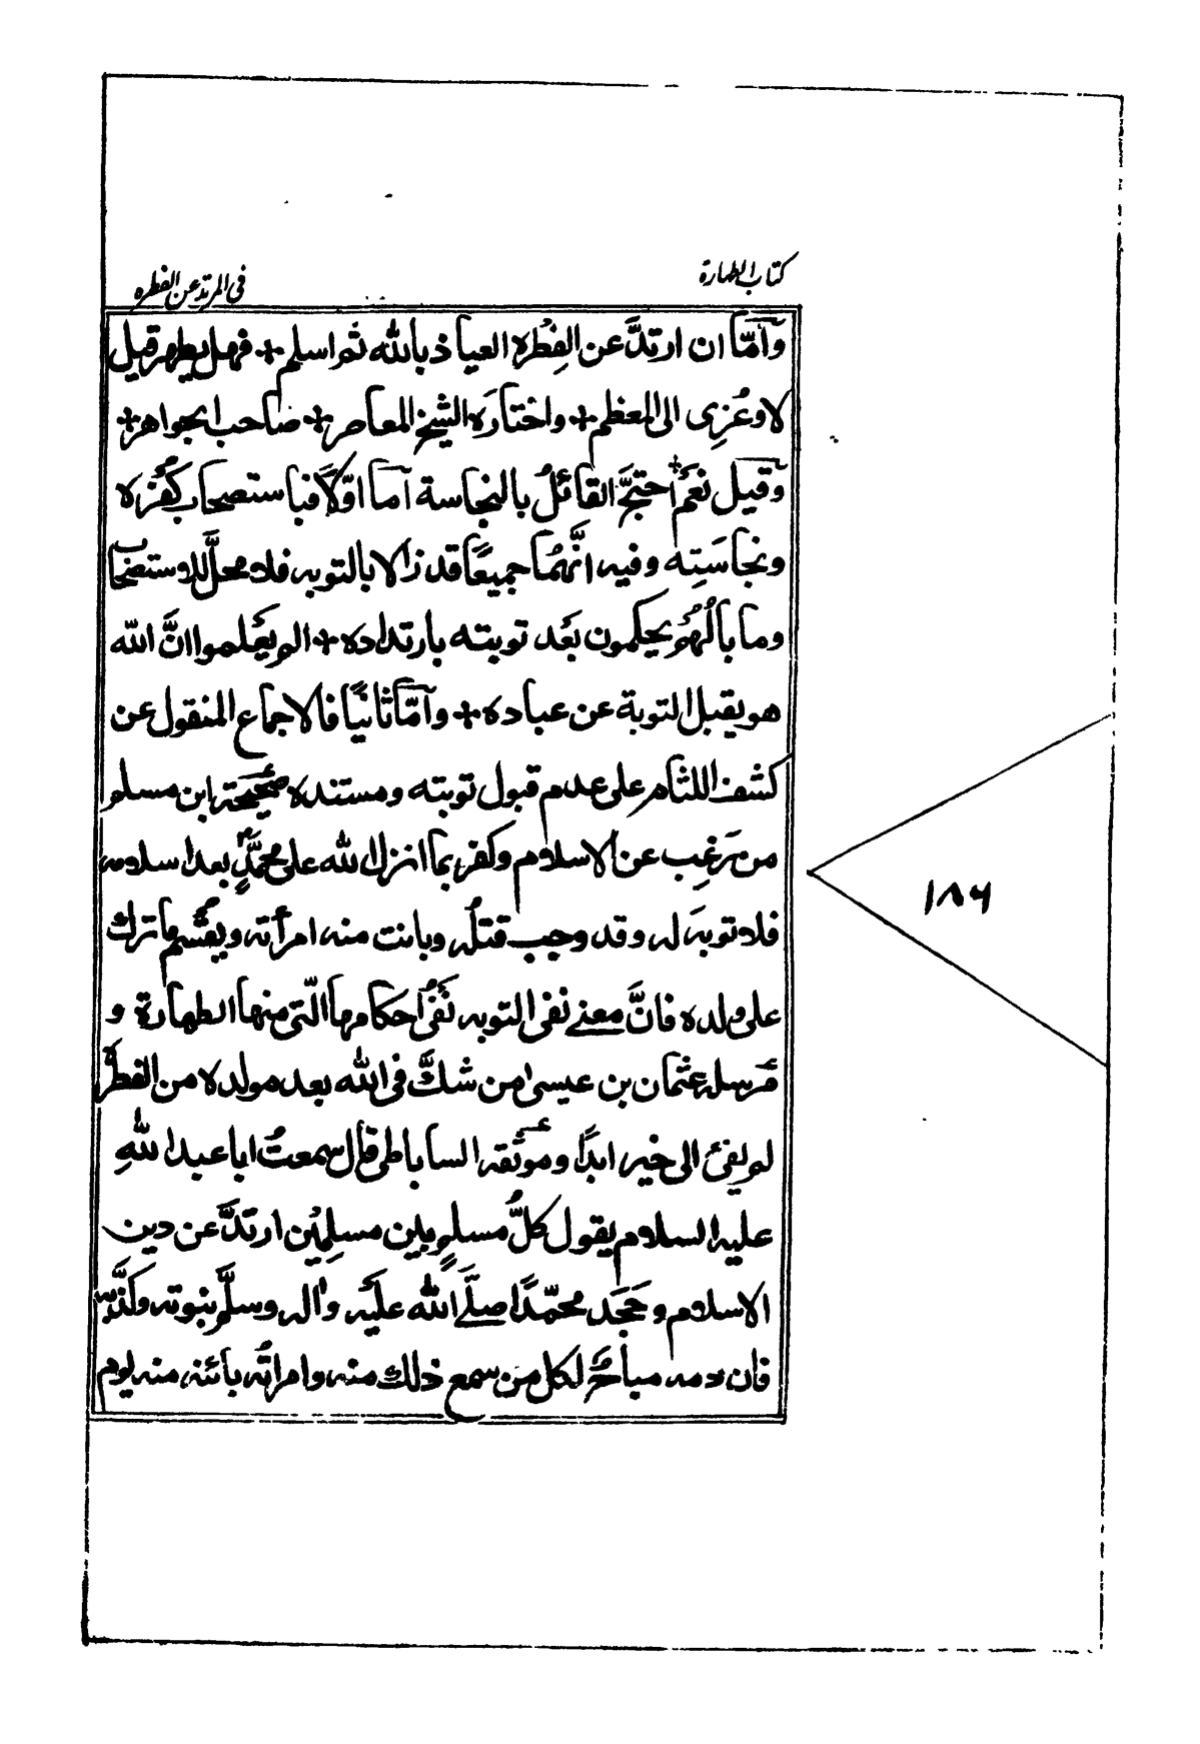 كتاب الطهارة
في المرتد عن الفطره
وَأمّا ان ارتدَّ عن الفِطره العياذ بالله ثم اسلم + فهل يطهر قيل
لا وعُزِى الى المعظم + واختارَه الشيخ المعاصر + صاحب الجواهر +
وَقيل نعم + احتجَّ القائلُ بالنجاسة أما اوّلاً فباستصحاب كُفره
ونجاسَتِه وفيه انَّهُما جميعًا قد زالا بالتوبه فلا محلَّ للاستصحاب
وما بالُهُم يحكمون بَعد توبته بارتداده + الم يَعلموا انَّ الله
هو يقبل التوبة عن عباده + وأمّا ثانيًا فالاجماع المنقول عن
كشف اللثام على عدم قبول توبته ومستنده صحيحة ابن مسلم
من رَغِب عن الاسلام وكفر بما انزل الله على محمَّدٍ بعد اسلامه
فلا توبَه له وقد وجب قتلُه وبانت منه امرأته ويقسَم ما ترك
على ولده فانَّ معنى نفى التوبه نَفىُ احكامها الّتى منها الطهارة و
مَرسله عثمان بن عيسى من شكَّ فى الله بعد مولده من الفطرة
لم يفئ الى خير ابدًا وموثقه الساباطى قال سمعتُ ابا عبد اللهِ
عليه السلام يقول كلُّ مسلمٍ بين مسلِمَيْن ارتدَّ عن دين
الاسلام وجَحَد محمّدًا صلَّے الله عليَه واله وسلَّم نبوته وكذَّبه
فان دمه مباحٌ لكل مَن سمع ذلك منه وامراتُه بائنه منه يوم
١٨٦